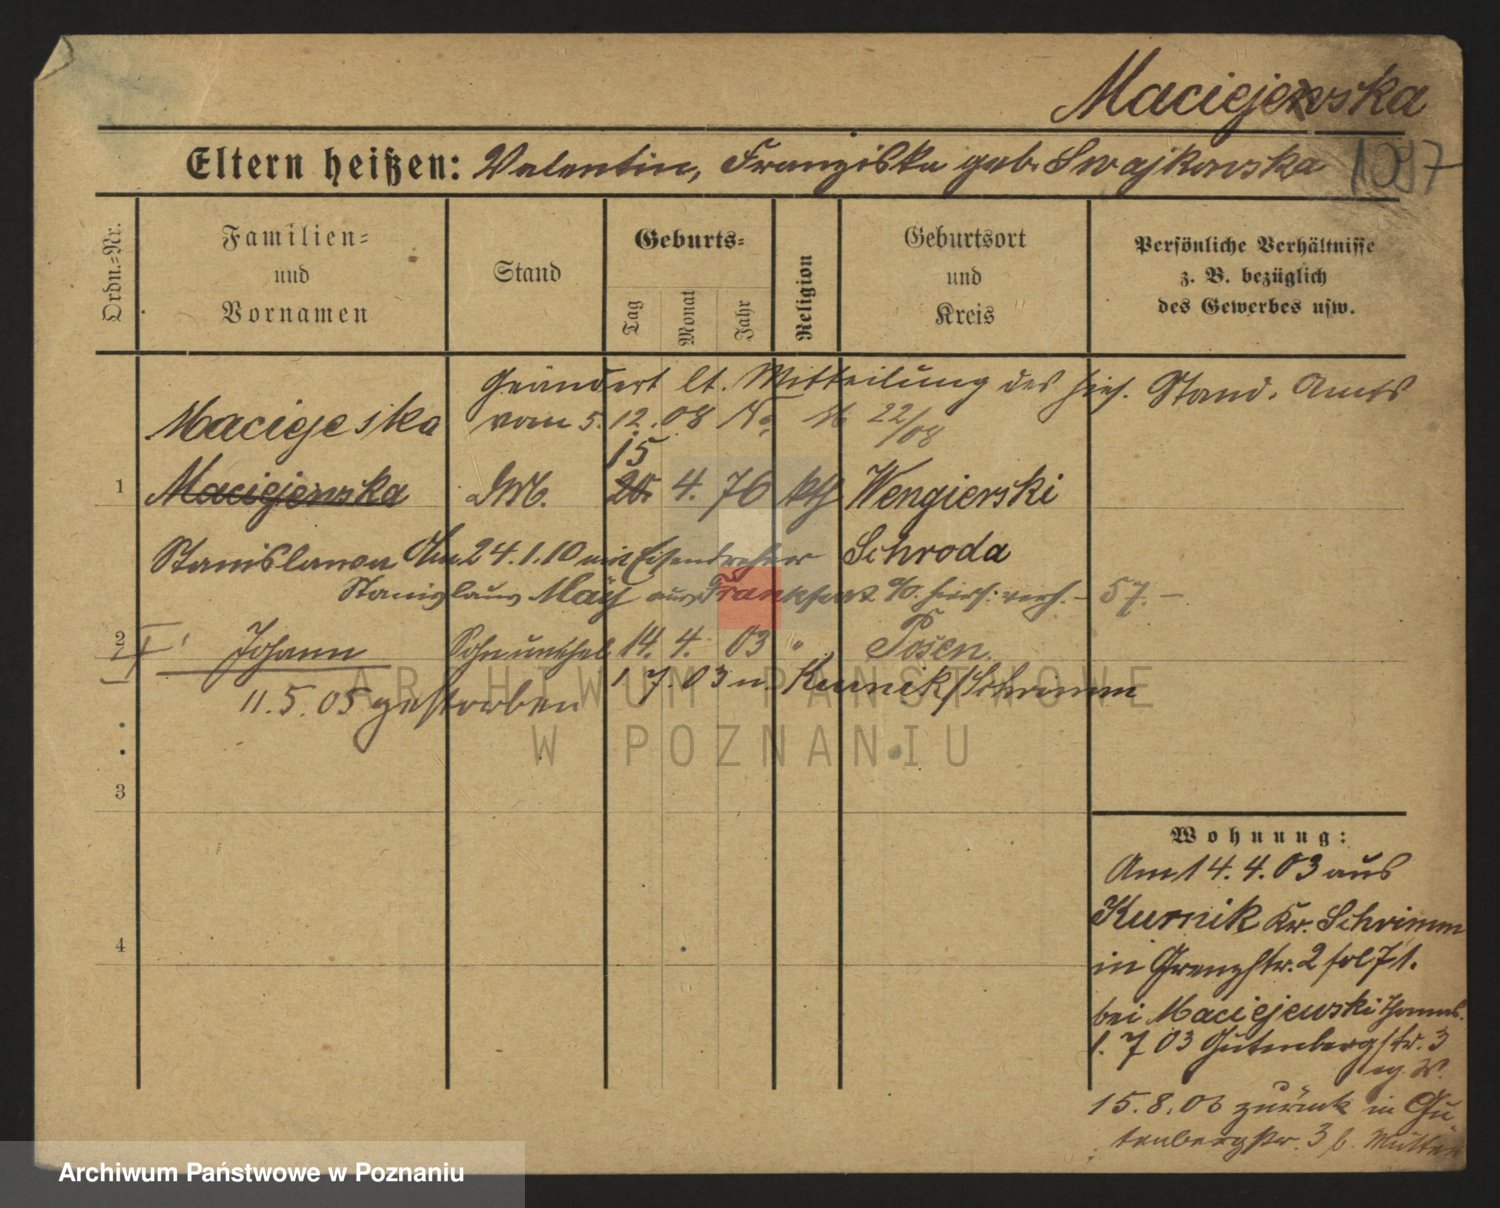 Maciejewska
Eltern heißen: Valentin, Franziska geb. Swajkowska 1097
Ordn.-Nr.
Familien-
und
Vornamen
Stand
Geburts-
Tag
Monat
Jahr
Religion
Geburtsort
und
Kreis
Persönliche Verhältnisse
z. B. bezüglich
des Gewerbes usw.
Geändert lt. Mitteilung des hies. Stand. Amts
Maciejeska vom 5. 12. 08 22/08
15
1 Maciejewska 4. 76 kth Wengierski
Stanislawa 24.1.10 mit Eisendreher Schroda
Stanislaus May aus Frankfurt a/O. hier verh. - 57. -
2 Johann Sohn unehel 14. 4. 03 " Posen
11.5.05 gestorben 1. 7. 03 n. Kurnik/Schrimm
3
4
Wohnung:
Am 14. 4. 03 aus
Kurnik Kr. Schrimm
in Grenzstr. 2 fol 71.
bei Maciejewski
1. 7 03 Gutenbergstr. 3
15. 8. 06 zurück in Gu
tenbergstr. 3 b. Mutter
ARCHIWUM PAŃSTWOWE
W POZNANIU
Archiwum Państwowe w Poznaniu